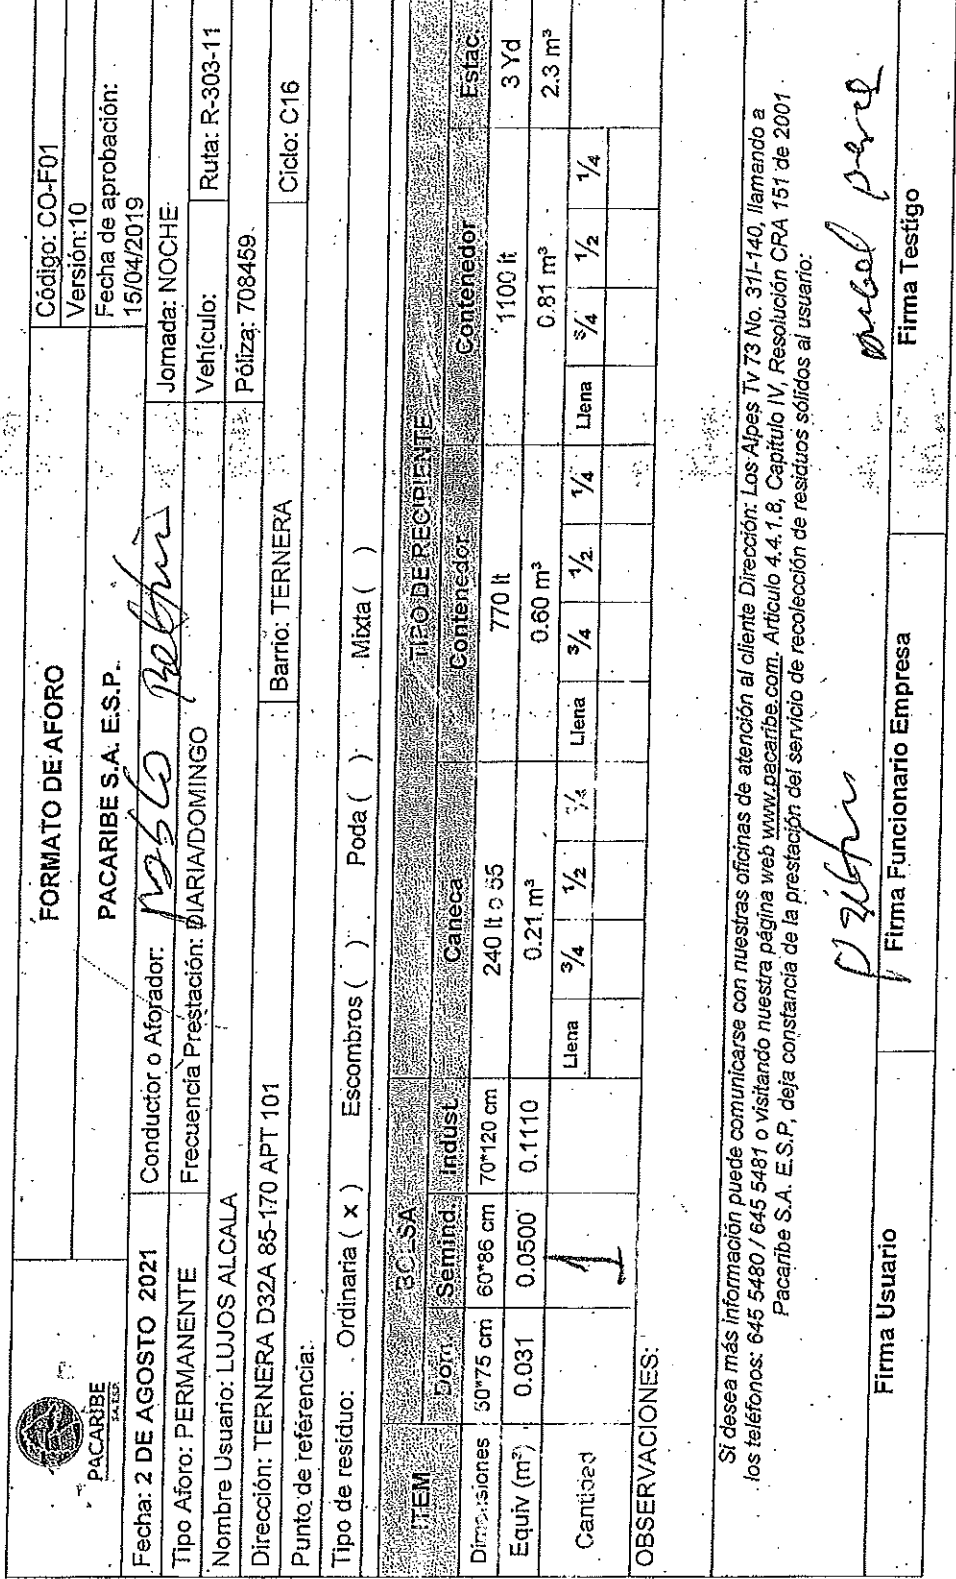 PACARIBE
S.A. E.S.P.
FORMATO DE AFORO
PACARIBE S.A. E.S.P.
Código: CO-F01
Versión:10
Fecha de aprobación:
15/04/2019
Fecha: 2 DE AGOSTO 2021 Conductor o Aforador: Jornada: NOCHE
Tipo Aforo: PERMANENTE Frecuencia Prestación: DIARIA/DOMINGO Vehículo: Ruta: R-303-11
Nombre Usuario: LUJOS ALCALA Póliza: 708459
Dirección: TERNERA D32A 85-170 APT 101 Barrio: TERNERA Ciclo: C16
Punto de referencia:
Tipo de residuo: Ordinaria ( x ) Escombros ( ) Poda ( ) Mixta ( )
ITEM BOLSA TIPO DE RECIPIENTE
Dom. Semind. Indust. Caneca Contenedor Contenedor Estac.
Dimensiones 50*75 cm 60*86 cm 70*120 cm 240 lt o 55 770 lt 1100 lt 3 Yd
Equiv (m³) 0.031 0.0500 0.1110 0.21 m³ 0.60 m³ 0.81 m³ 2.3 m³
Cantidad 1 Llena 3/4 1/2 1/4 Llena 3/4 1/2 1/4 Llena 3/4 1/2 1/4
OBSERVACIONES:
Si desea más información puede comunicarse con nuestras oficinas de atención al cliente Dirección: Los Alpes Tv 73 No. 31I-140, llamando a
los teléfonos: 645 5480 / 645 5481 o visitando nuestra página web www.pacaribe.com. Artículo 4.4.1.8, Capítulo IV, Resolución CRA 151 de 2001
Pacaribe S.A. E.S.P, deja constancia de la prestación del servicio de recolección de residuos sólidos al usuario:
Firma Usuario Firma Funcionario Empresa Firma Testigo